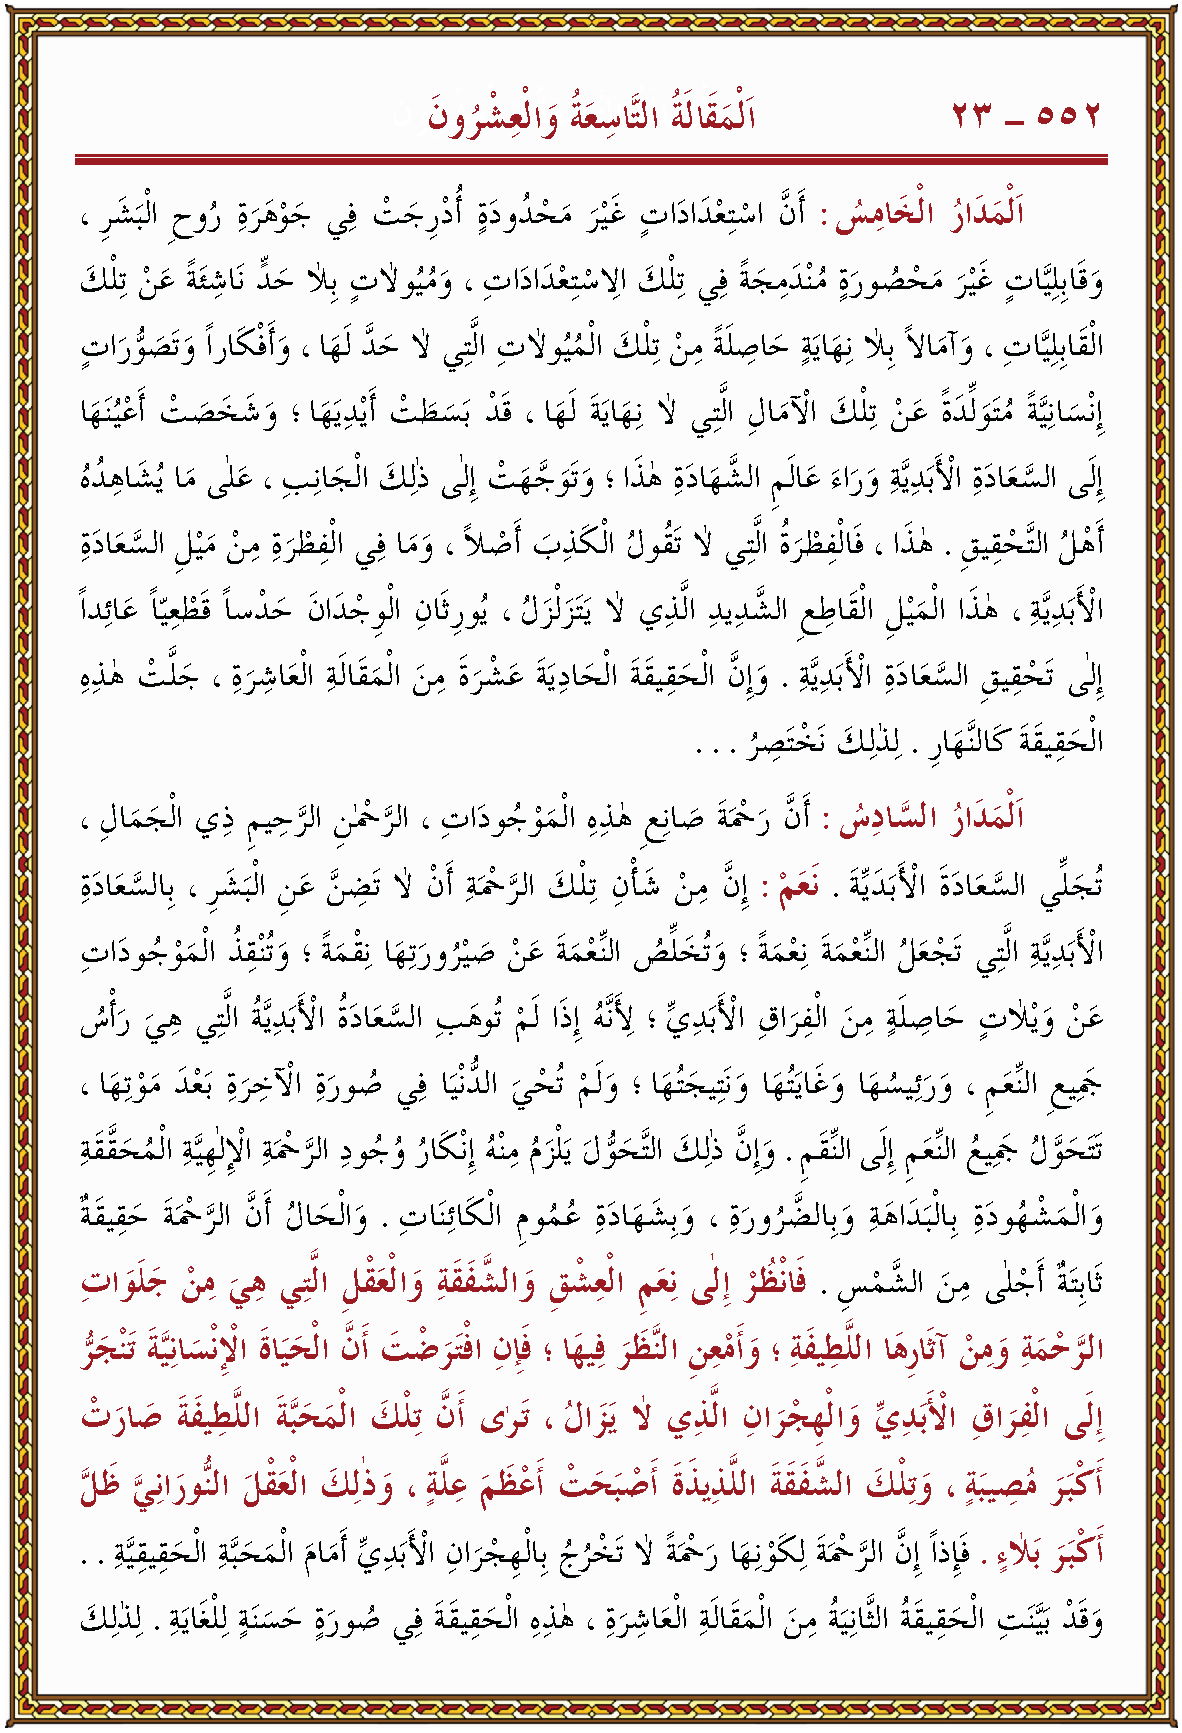 ٥٥٢ ـ ٢٣ اَلْمَقَالَةُ التَّاسِعَةُ وَالْعِشْرُونَ
اَلْمَدَارُ الْخَامِسُ : أَنَّ اسْتِعْدَادَاتٍ غَيْرَ مَحْدُودَةٍ أُدْرِجَتْ فِي جَوْهَرَةِ رُوحِ الْبَشَرِ ،
وَقَابِلِيَّاتٍ غَيْرَ مَحْصُورَةٍ مُنْدَمِجَةً فِي تِلْكَ الِاسْتِعْدَادَاتِ ، وَمُيُولاٰتٍ بِلاٰ حَدٍّ نَاشِئَةً عَنْ تِلْكَ
الْقَابِلِيَّاتِ ، وَآمَالاً بِلاٰ نِهَايَةٍ حَاصِلَةً مِنْ تِلْكَ الْمُيُولاٰتِ الَّتِي لاٰ حَدَّ لَهَا ، وَأَفْكَاراً وَتَصَوُّرَاتٍ
إِنْسَانِيَّةً مُتَوَلِّدَةً عَنْ تِلْكَ الْآمَالِ الَّتِي لاٰ نِهَايَةَ لَهَا ، قَدْ بَسَطَتْ أَيْدِيَهَا ؛ وَشَخَصَتْ أَعْيُنَهَا
إِلَى السَّعَادَةِ الْأَبَدِيَّةِ وَرَاءَ عَالَمِ الشَّهَادَةِ هٰذَا ؛ وَتَوَجَّهَتْ إِلٰى ذٰلِكَ الْجَانِبِ ، عَلٰى مَا يُشَاهِدُهُ
أَهْلُ التَّحْقِيقِ . هٰذَا ، فَالْفِطْرَةُ الَّتِي لاٰ تَقُولُ الْكَذِبَ أَصْلاً ، وَمَا فِي الْفِطْرَةِ مِنْ مَيْلِ السَّعَادَةِ
الْأَبَدِيَّةِ ، هٰذَا الْمَيْلِ الْقَاطِعِ الشَّدِيدِ الَّذِي لاٰ يَتَزَلْزَلُ ، يُورِثَانِ الْوِجْدَانَ حَدْساً قَطْعِيّاً عَائِداً
إِلٰى تَحْقِيقِ السَّعَادَةِ الْأَبَدِيَّةِ . وَإِنَّ الْحَقِيقَةَ الْحَادِيَةَ عَشْرَةَ مِنَ الْمَقَالَةِ الْعَاشِرَةِ ، جَلَّتْ هٰذِهِ
الْحَقِيقَةَ كَالنَّهَارِ . لِذٰلِكَ نَخْتَصِرُ . . .
اَلْمَدَارُ السَّادِسُ : أَنَّ رَحْمَةَ صَانِعِ هٰذِهِ الْمَوْجُودَاتِ ، الرَّحْمٰنِ الرَّحِيمِ ذِي الْجَمَالِ ،
تُجَلِّي السَّعَادَةَ الْأَبَدِيَّةَ . نَعَمْ : إِنَّ مِنْ شَأْنِ تِلْكَ الرَّحْمَةِ أَنْ لاٰ تَضِنَّ عَنِ الْبَشَرِ ، بِالسَّعَادَةِ
الْأَبَدِيَّةِ الَّتِي تَجْعَلُ النِّعْمَةَ نِعْمَةً ؛ وَتُخَلِّصُ النِّعْمَةَ عَنْ صَيْرُورَتِهَا نِقْمَةً ؛ وَتُنْقِذُ الْمَوْجُودَاتِ
عَنْ وَيْلاٰتٍ حَاصِلَةٍ مِنَ الْفِرَاقِ الْأَبَدِيِّ ؛ لِأَنَّهُ إِذَا لَمْ تُوهَبِ السَّعَادَةُ الْأَبَدِيَّةُ الَّتِي هِيَ رَأْسُ
جَمِيعِ النِّعَمِ ، وَرَئِيسُهَا وَغَايَتُهَا وَنَتِيجَتُهَا ؛ وَلَمْ تُحْيَ الدُّنْيَا فِي صُورَةِ الْآخِرَةِ بَعْدَ مَوْتِهَا ،
تَتَحَوَّلُ جَمِيعُ النِّعَمِ إِلَى النِّقَمِ . وَإِنَّ ذٰلِكَ التَّحَوُّلَ يَلْزَمُ مِنْهُ إِنْكَارُ وُجُودِ الرَّحْمَةِ الْإِلٰهِيَّةِ الْمُحَقَّقَةِ
وَالْمَشْهُودَةِ بِالْبَدَاهَةِ وَبِالضَّرُورَةِ ، وَبِشَهَادَةِ عُمُومِ الْكَائِنَاتِ . وَالْحَالُ أَنَّ الرَّحْمَةَ حَقِيقَةٌ
ثَابِتَةٌ أَجْلٰى مِنَ الشَّمْسِ . فَانْظُرْ إِلٰى نِعَمِ الْعِشْقِ وَالشَّفَقَةِ وَالْعَقْلِ الَّتِي هِيَ مِنْ جَلَوَاتِ
الرَّحْمَةِ وَمِنْ آثَارِهَا اللَّطِيفَةِ ؛ وَأَمْعِنِ النَّظَرَ فِيهَا ؛ فَإِنِ افْتَرَضْتَ أَنَّ الْحَيَاةَ الْإِنْسَانِيَّةَ تَنْجَرُّ
إِلَى الْفِرَاقِ الْأَبَدِيِّ وَالْهِجْرَانِ الَّذِي لاٰ يَزَالُ ، تَرٰى أَنَّ تِلْكَ الْمَحَبَّةَ اللَّطِيفَةَ صَارَتْ
أَكْبَرَ مُصِيبَةٍ ، وَتِلْكَ الشَّفَقَةَ اللَّذِيذَةَ أَصْبَحَتْ أَعْظَمَ عِلَّةٍ ، وَذٰلِكَ الْعَقْلَ النُّورَانِيَّ ظَلَّ
أَكْبَرَ بَلاٰءٍ . فَإِذاً إِنَّ الرَّحْمَةَ لِكَوْنِهَا رَحْمَةً لاٰ تَخْرُجُ بِالْهِجْرَانِ الْأَبَدِيِّ أَمَامَ الْمَحَبَّةِ الْحَقِيقِيَّةِ . .
وَقَدْ بَيَّنَتِ الْحَقِيقَةُ الثَّانِيَةُ مِنَ الْمَقَالَةِ الْعَاشِرَةِ ، هٰذِهِ الْحَقِيقَةَ فِي صُورَةٍ حَسَنَةٍ لِلْغَايَةِ . لِذٰلِكَ